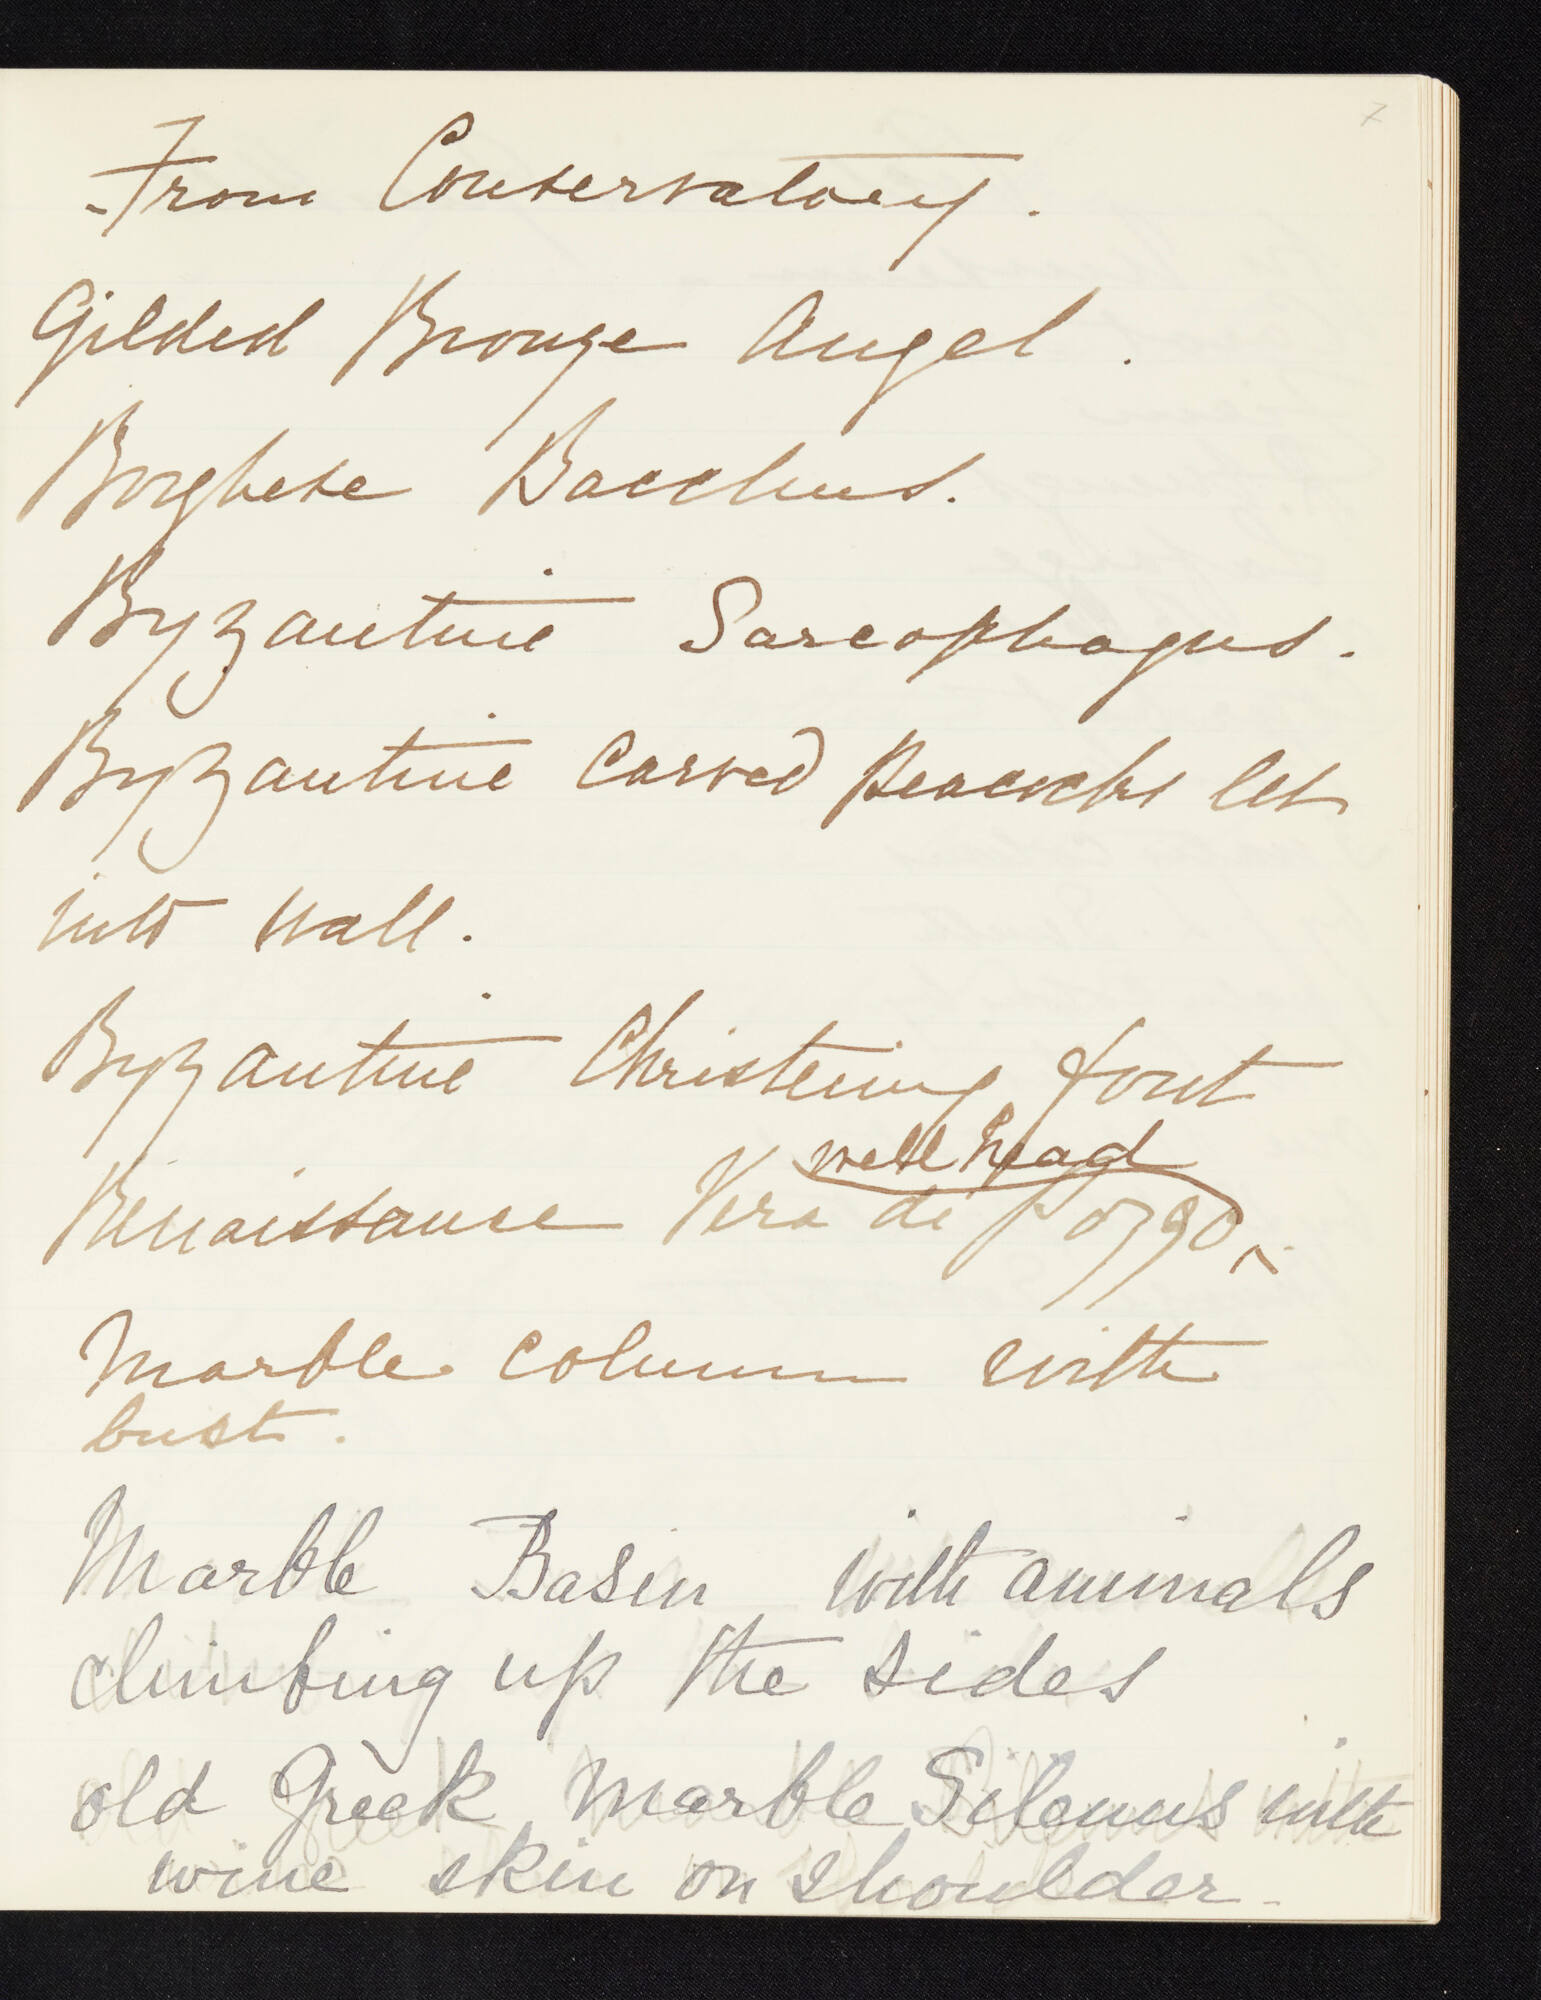 7
From Conservatory.
Gilded Bronze Angel.
Borghese Bacchus.
Byzantine Sarcophagus.
Byzantine Carved Peacocks let
into wall.
Byzantine Christening font
well head
Renaissance Vera di Pozzo ^.
Marble column with
bust.
Marble Basin with animals
climbing up the sides
old Greek Marble Silenus with
wine skin on shoulder